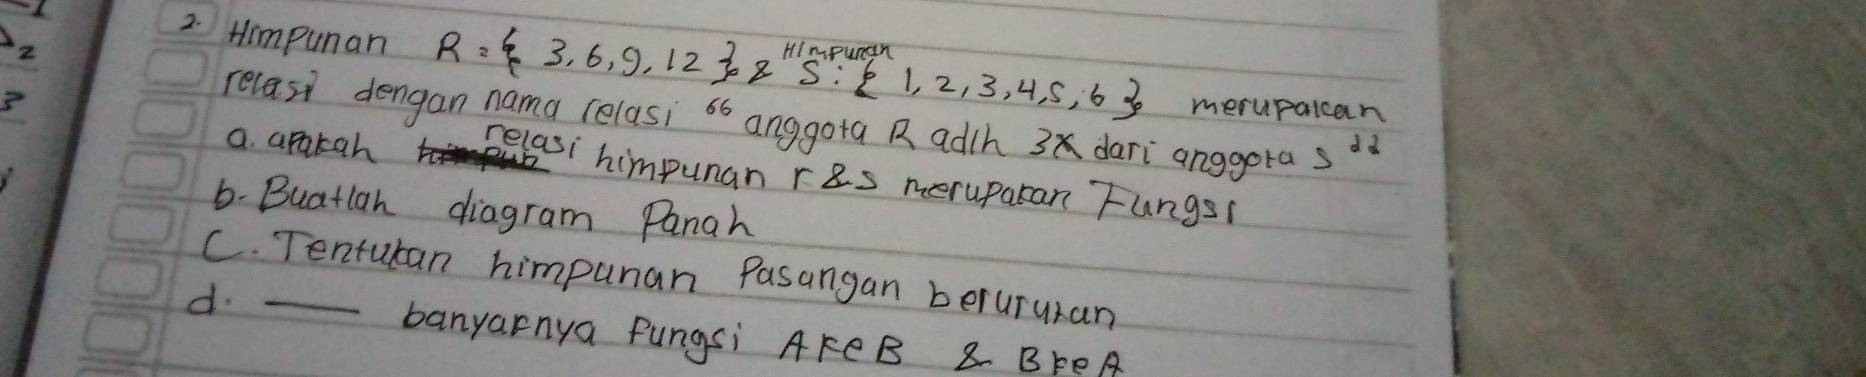 2. Himpunan R = { 3, 6, 9, 12 } & Himpunan S : { 1, 2, 3, 4, 5, 6 } merupakan
relasi dengan nama relasi " anggota R adlh 3x dari anggota S "
a. apakah relasi himpunan r & s merupakan Fungsi
b. Buatlah diagram Panah
C. Tentukan himpunan Pasangan berurutan
d. — banyaknya fungsi A ke B & B ke A
2
3